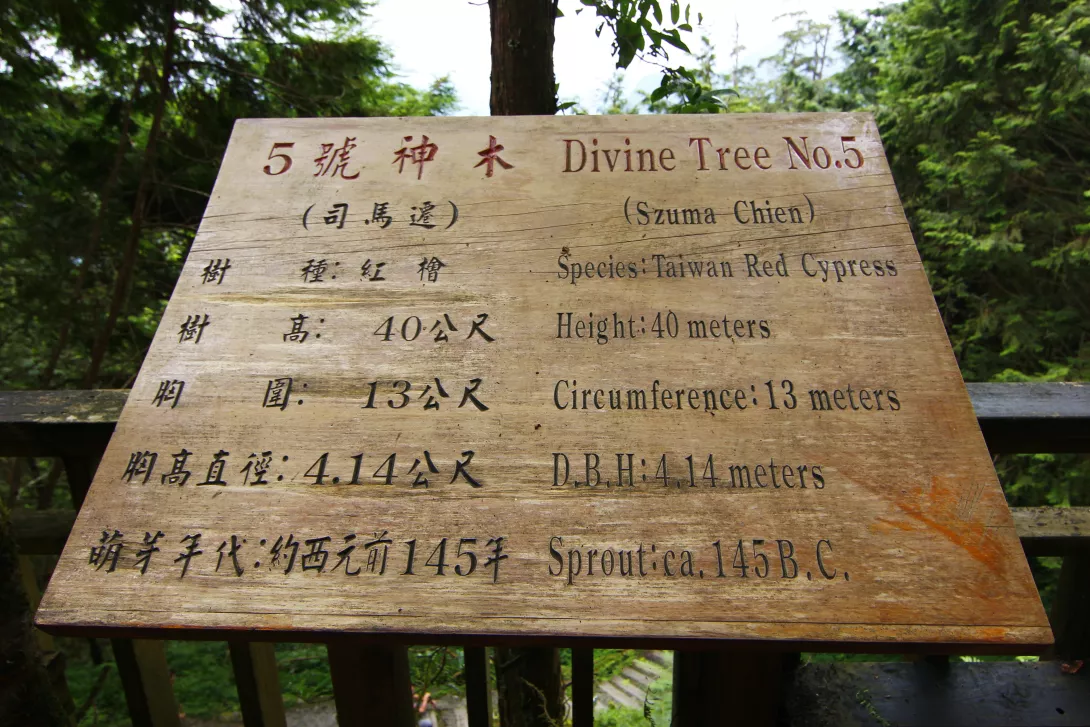 5 號 神 木 Divine Tree No.5
(司 馬 遷) (Szuma Chien)
樹 種: 紅 檜 Species:Taiwan Red Cypress
樹 高: 40公尺 Height:40 meters
胸 圍: 13公尺 Circumference:13 meters
胸高直徑:4.14公尺 D.B.H:4.14 meters
萌芽年代:約西元前145年 Sprout:ca.145B.C.